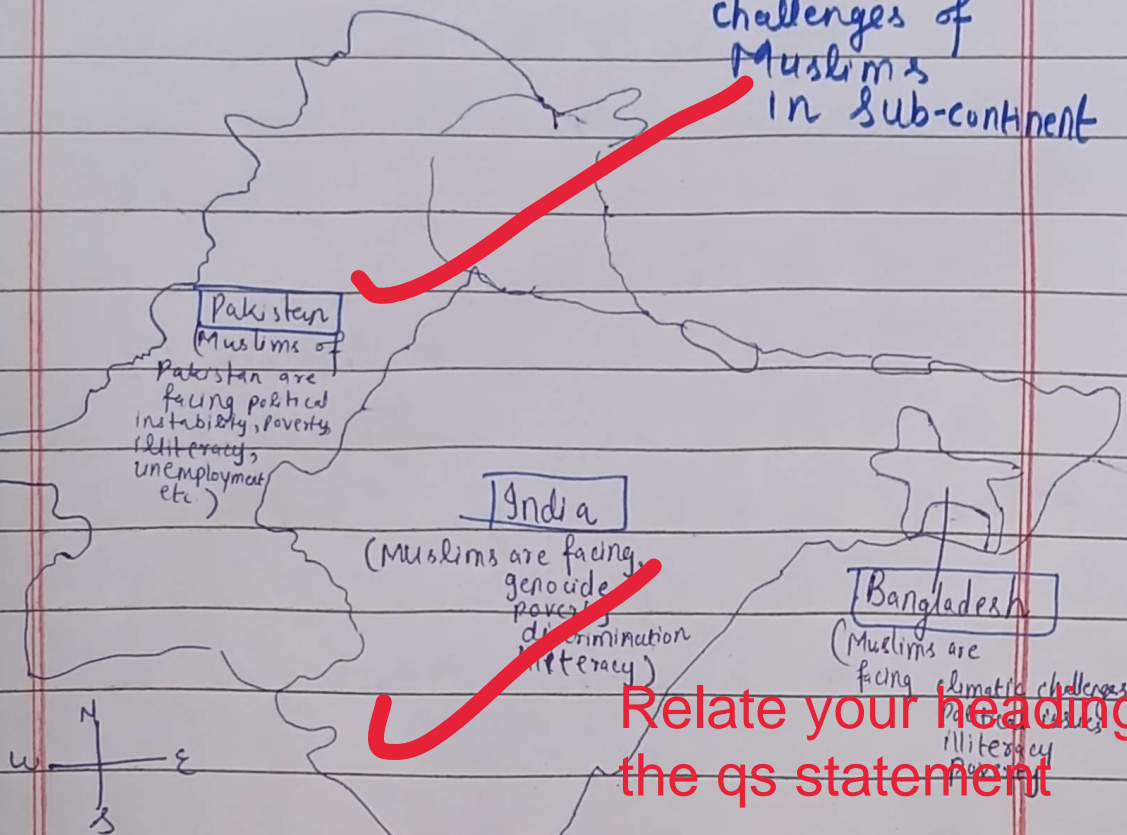 challenges of
Muslims
in sub-continent
Pakistan
(Muslims of
Pakistan are
facing political
instability, poverty,
illiteracy,
unemployment
etc.)
India
(Muslims are facing,
genocide
poverty
discrimination
illiteracy)
Bangladesh
(Muslims are
facing climatic challenges
Political issues
illiteracy
poverty
Relate your heading
the qs statement
N
W
E
S